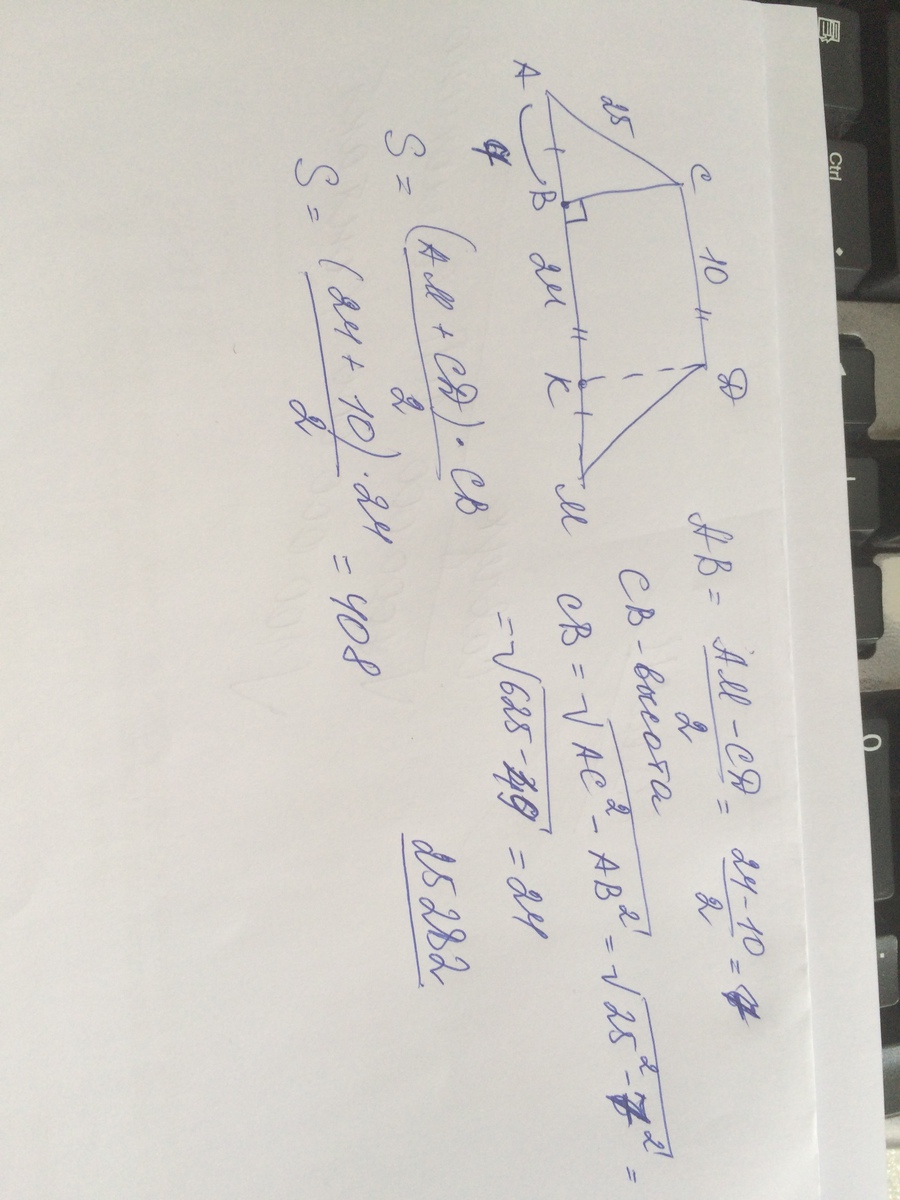 C 10 D
25
A B 24 K M
7
AB = (AM - CD)/2 = (24 - 10)/2 = 7
CB - высота
CB = √(AC² - AB²) = √(25² - 7²) =
= √(625 - 49) = 24
S = (AM + CD)/2 · CB
S = (24 + 10)/2 · 24 = 408
25282
Ctrl